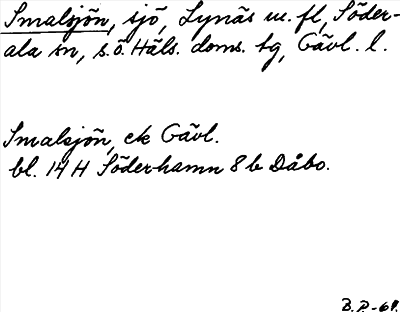 Smalsjön, sjö, Lynäs m. fl, Söder-
ala sn, s.ö. Häls. doms. tg, Gävl. l.
Smalsjön, ek Gävl.
bl. 14 H Söderhamn 8 b Dåbo.
B.P.-69.